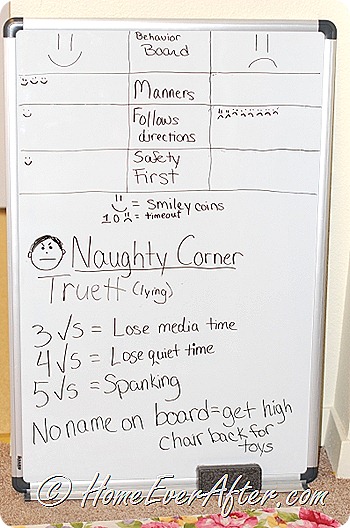 Behavior
Board
Manners
Follows
directions
Safety
First
= Smiley coins
10 = timeout
Naughty Corner
Truett (lying)
3 √s = Lose media time
4 √s = Lose quiet time
5 √s = Spanking
No name on board = get high
chair back for
toys
© HomeEverAfter.com